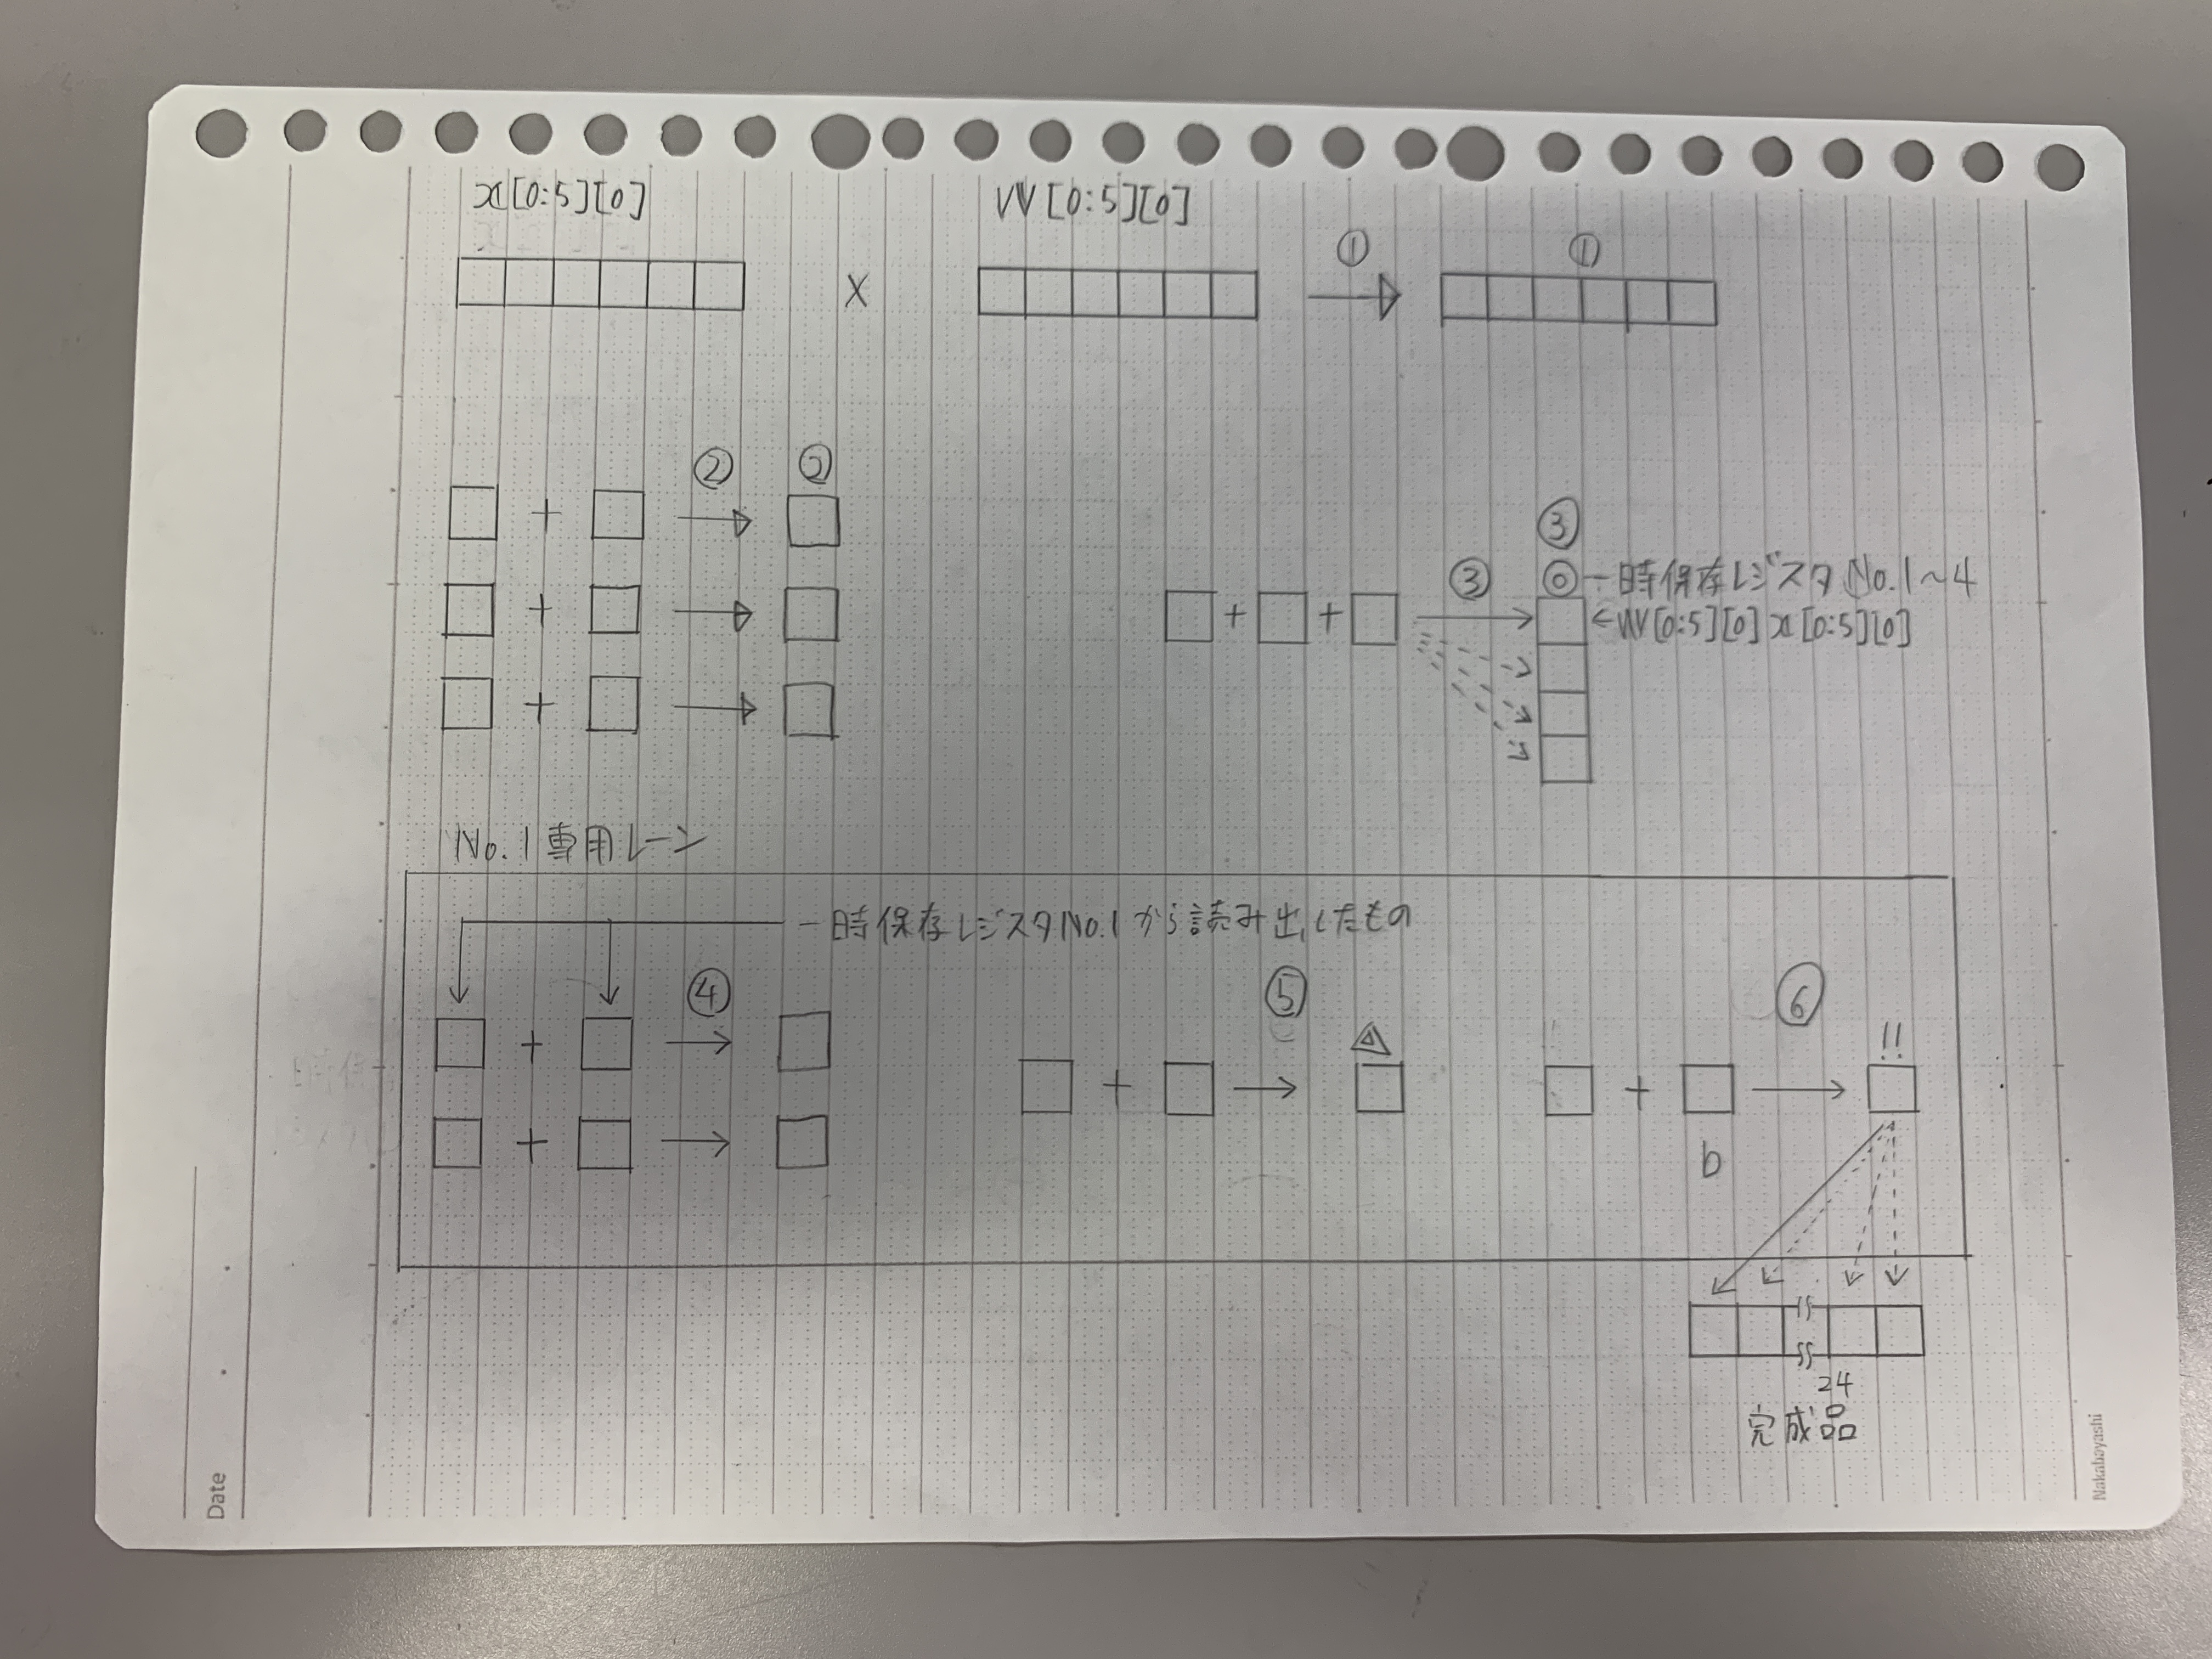 x[0:5][0]
W[0:5][0]
×
①
①
②
②
+
+
+
③
③
◎ 一時保存レジスタ No.1~4
+ +
←W[0:5][0] x[0:5][0]
No.1 専用レーン
一時保存レジスタNo.1から読み出したもの
④
⑤
⑥
!!
+
+
+
+
b
24
完成品
Date
Nakabayashi